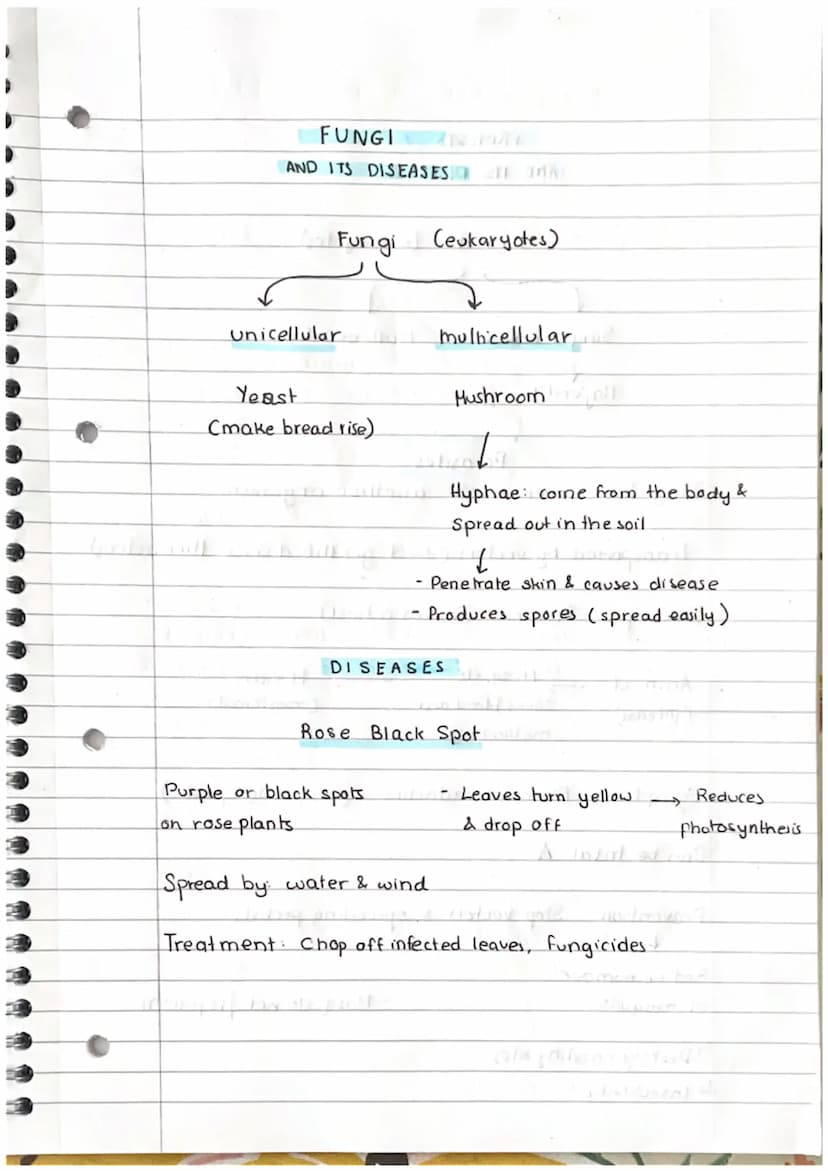 FUNGI
AND ITS DISEASES
Fungi (eukaryotes)
unicellular multicellular
Yeast Mushroom
(make bread rise)
Hyphae: come from the body &
Spread out in the soil
- Penetrate skin & causes disease
- Produces spores (spread easily)
DISEASES
Rose Black Spot
Purple or black spots - Leaves turn yellow → Reduces
on rose plants & drop off photosynthesis
Spread by: water & wind
Treatment: Chop off infected leaves, fungicides